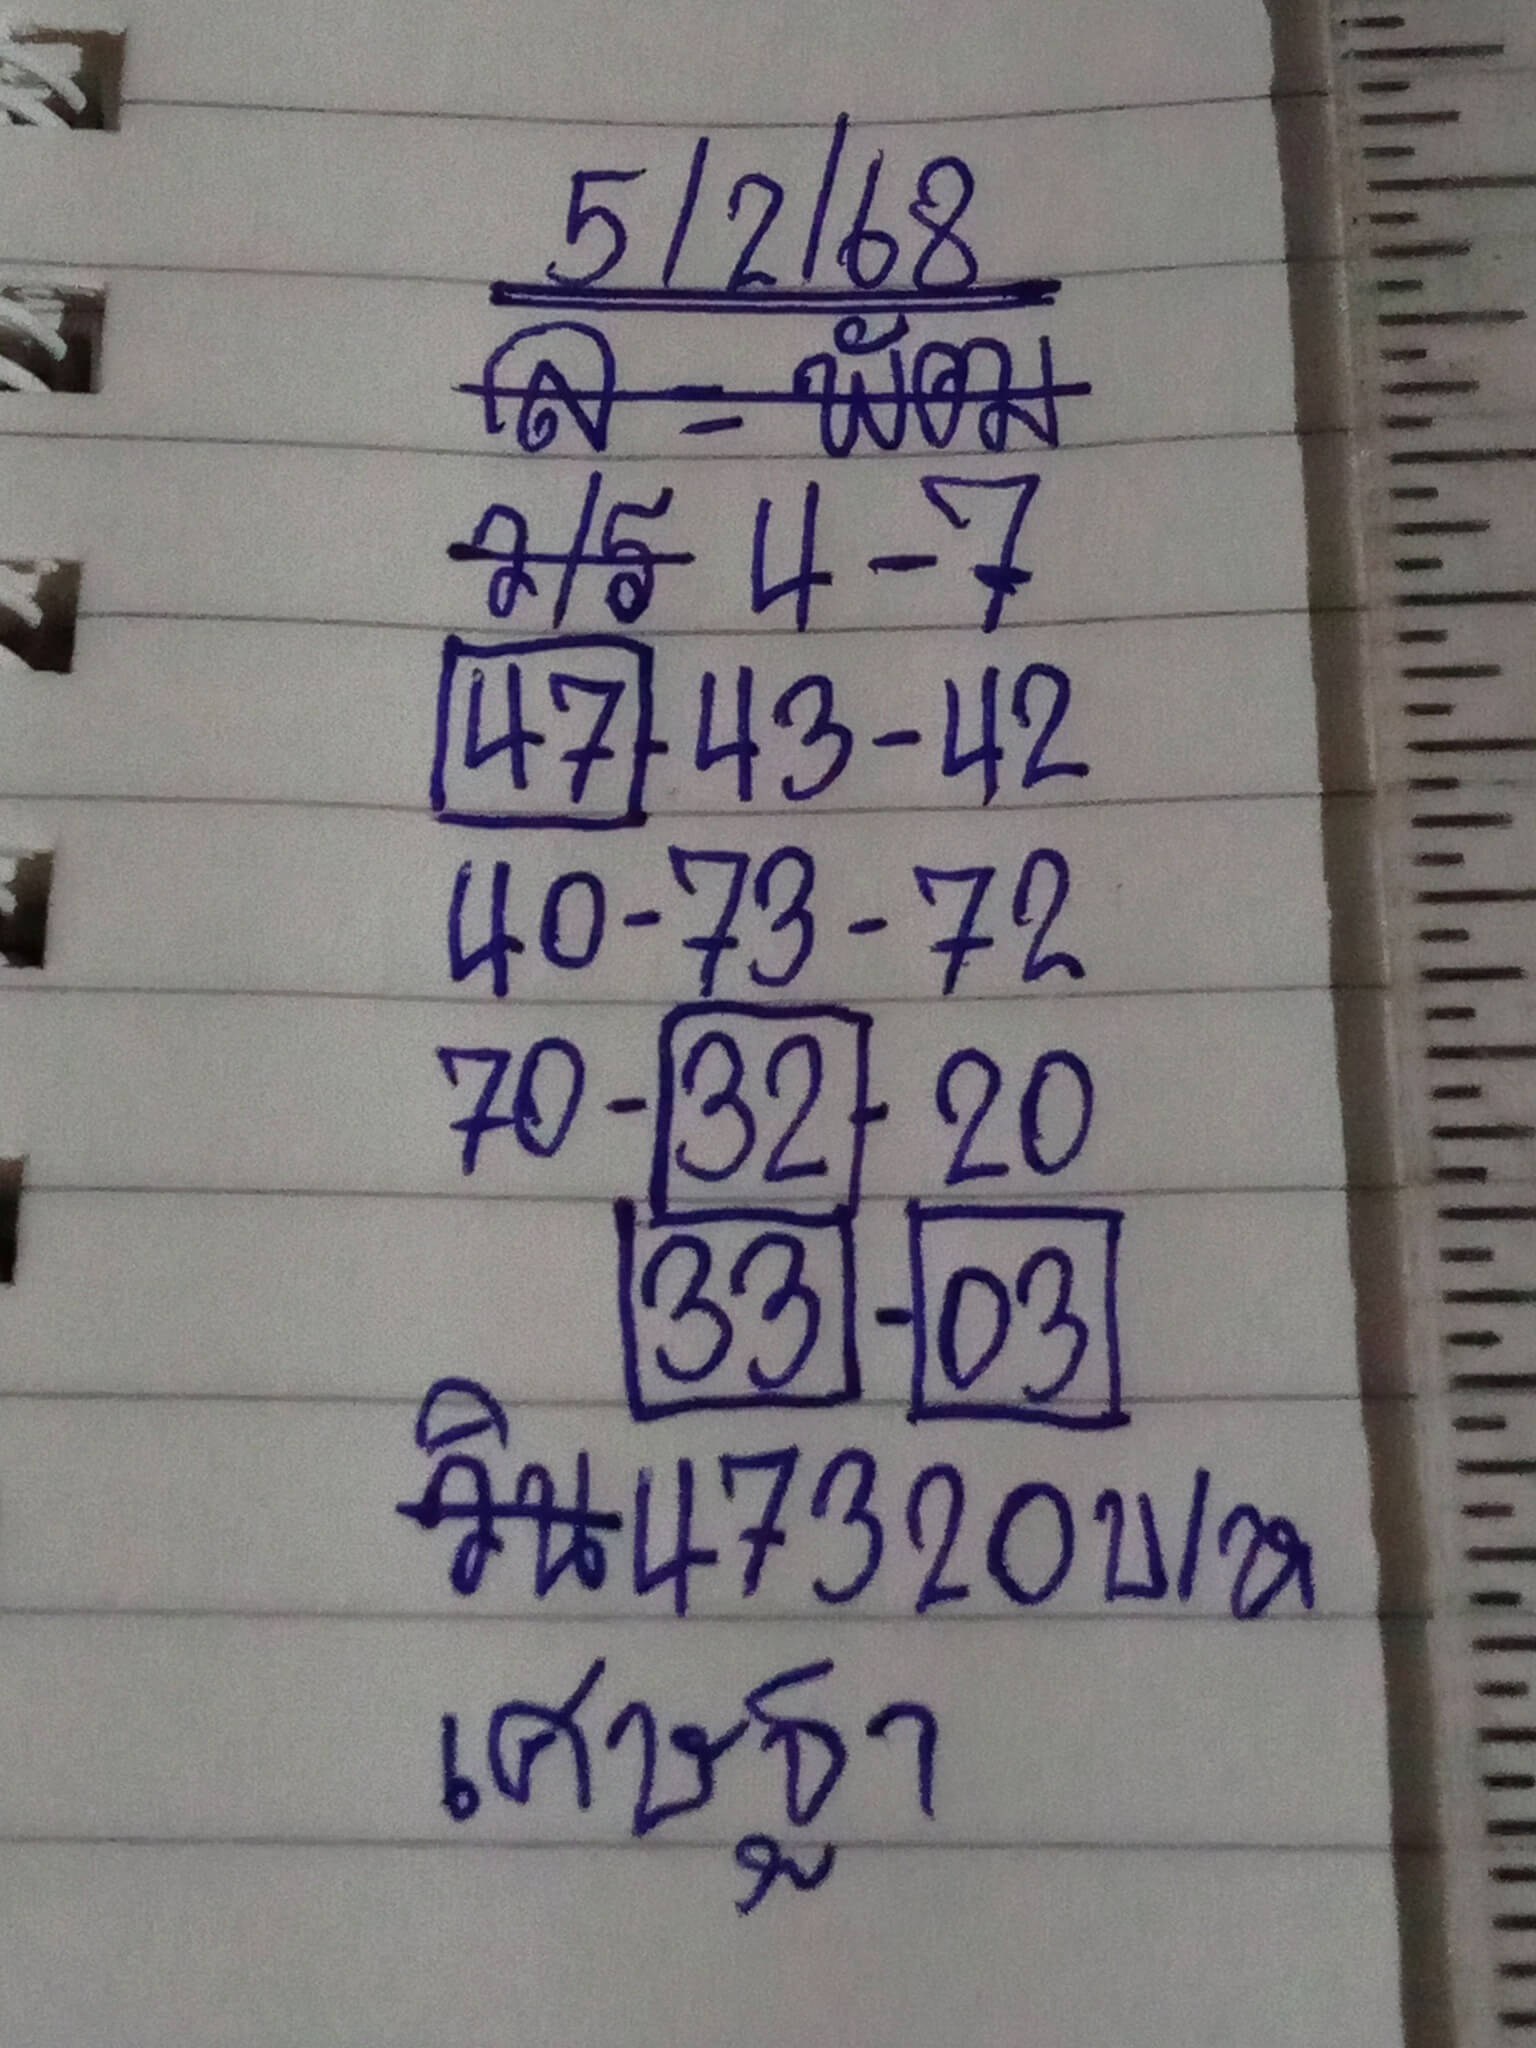 5/2/68
ล = พัฒม
ว/รู 4-7
47-43-42
40-73-72
70-32-20
33-03
วิน 47320 บ/ล
เศรษฐา